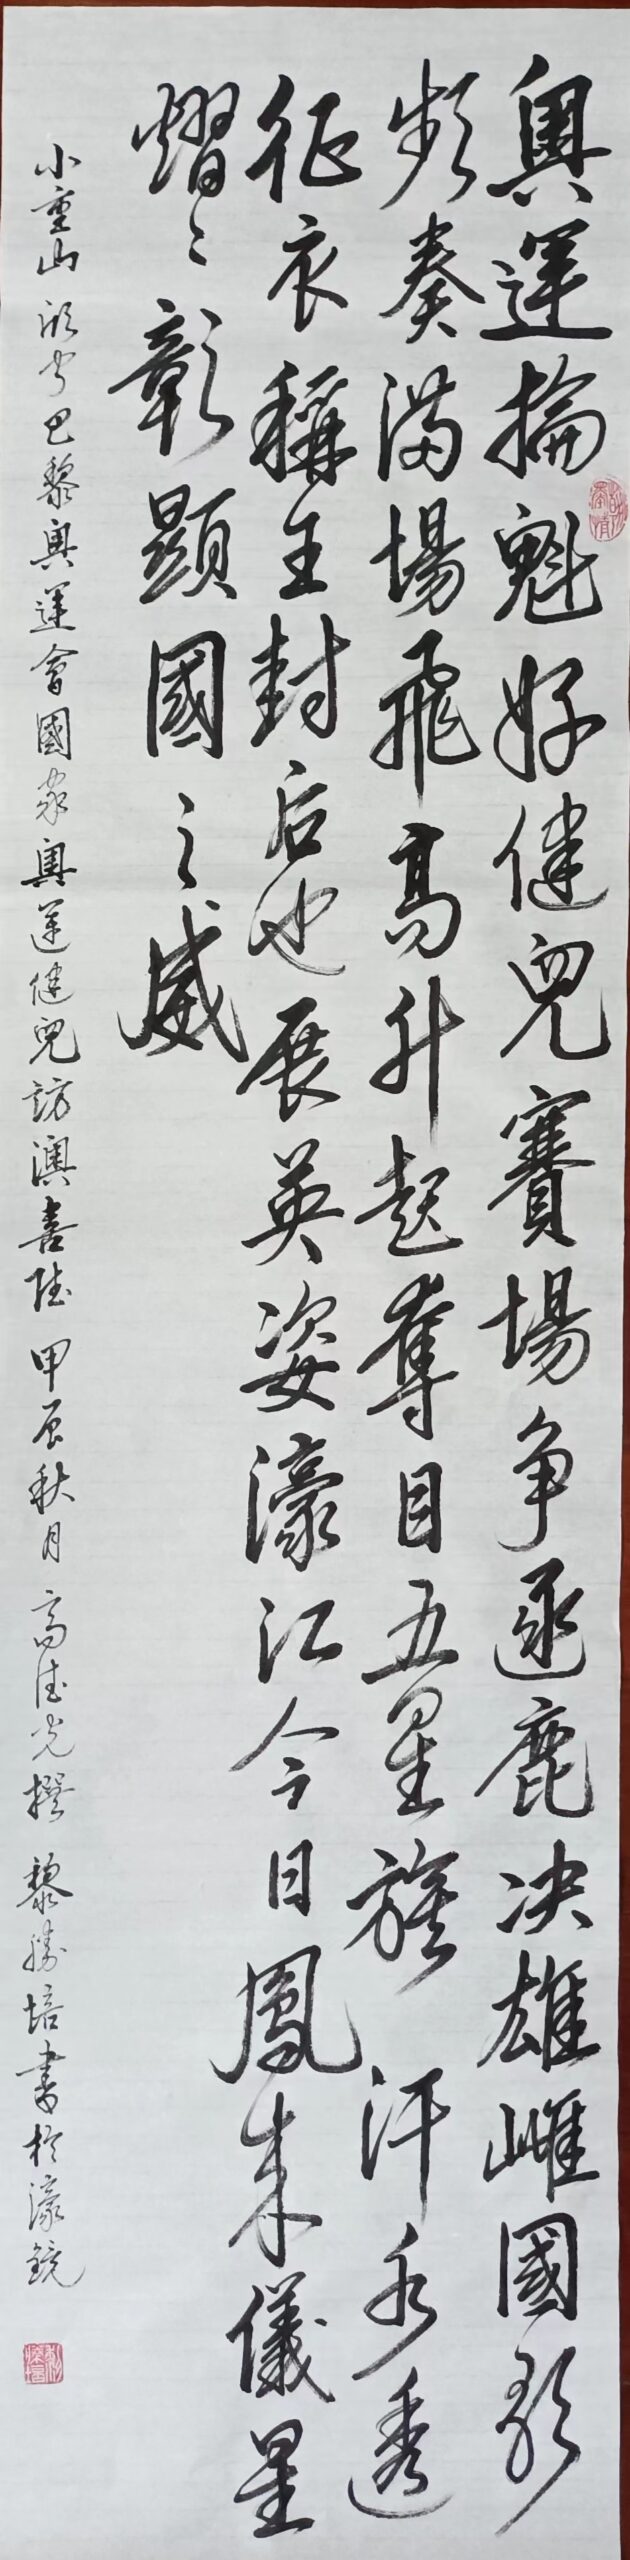 奧運掄魁好健兒賽場爭逐鹿决雄雌國歌
頻奏滿場飛高升起奪目五星旗 汗水透
征衣稱王封后也展英姿濠江今日鳳來儀星
熠〻彰顯國之威
小重山 欣聞巴黎奧運會國家奧運健兒訪澳喜賦 甲辰秋月 高德光撰 黎勝培書於濠鏡